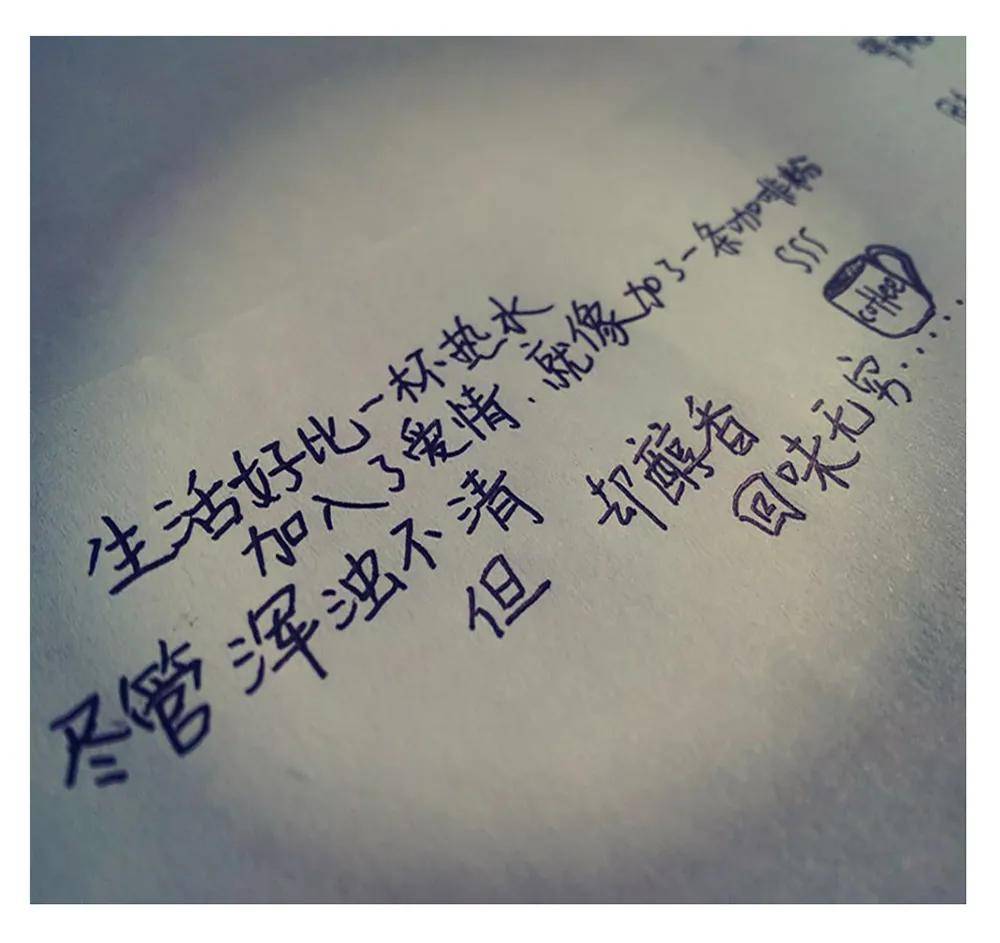 生活好比一杯热水
加入了爱情、就像加了一条咖啡粉
coffee
尽管浑浊不清
但却醇香
回味无穷......